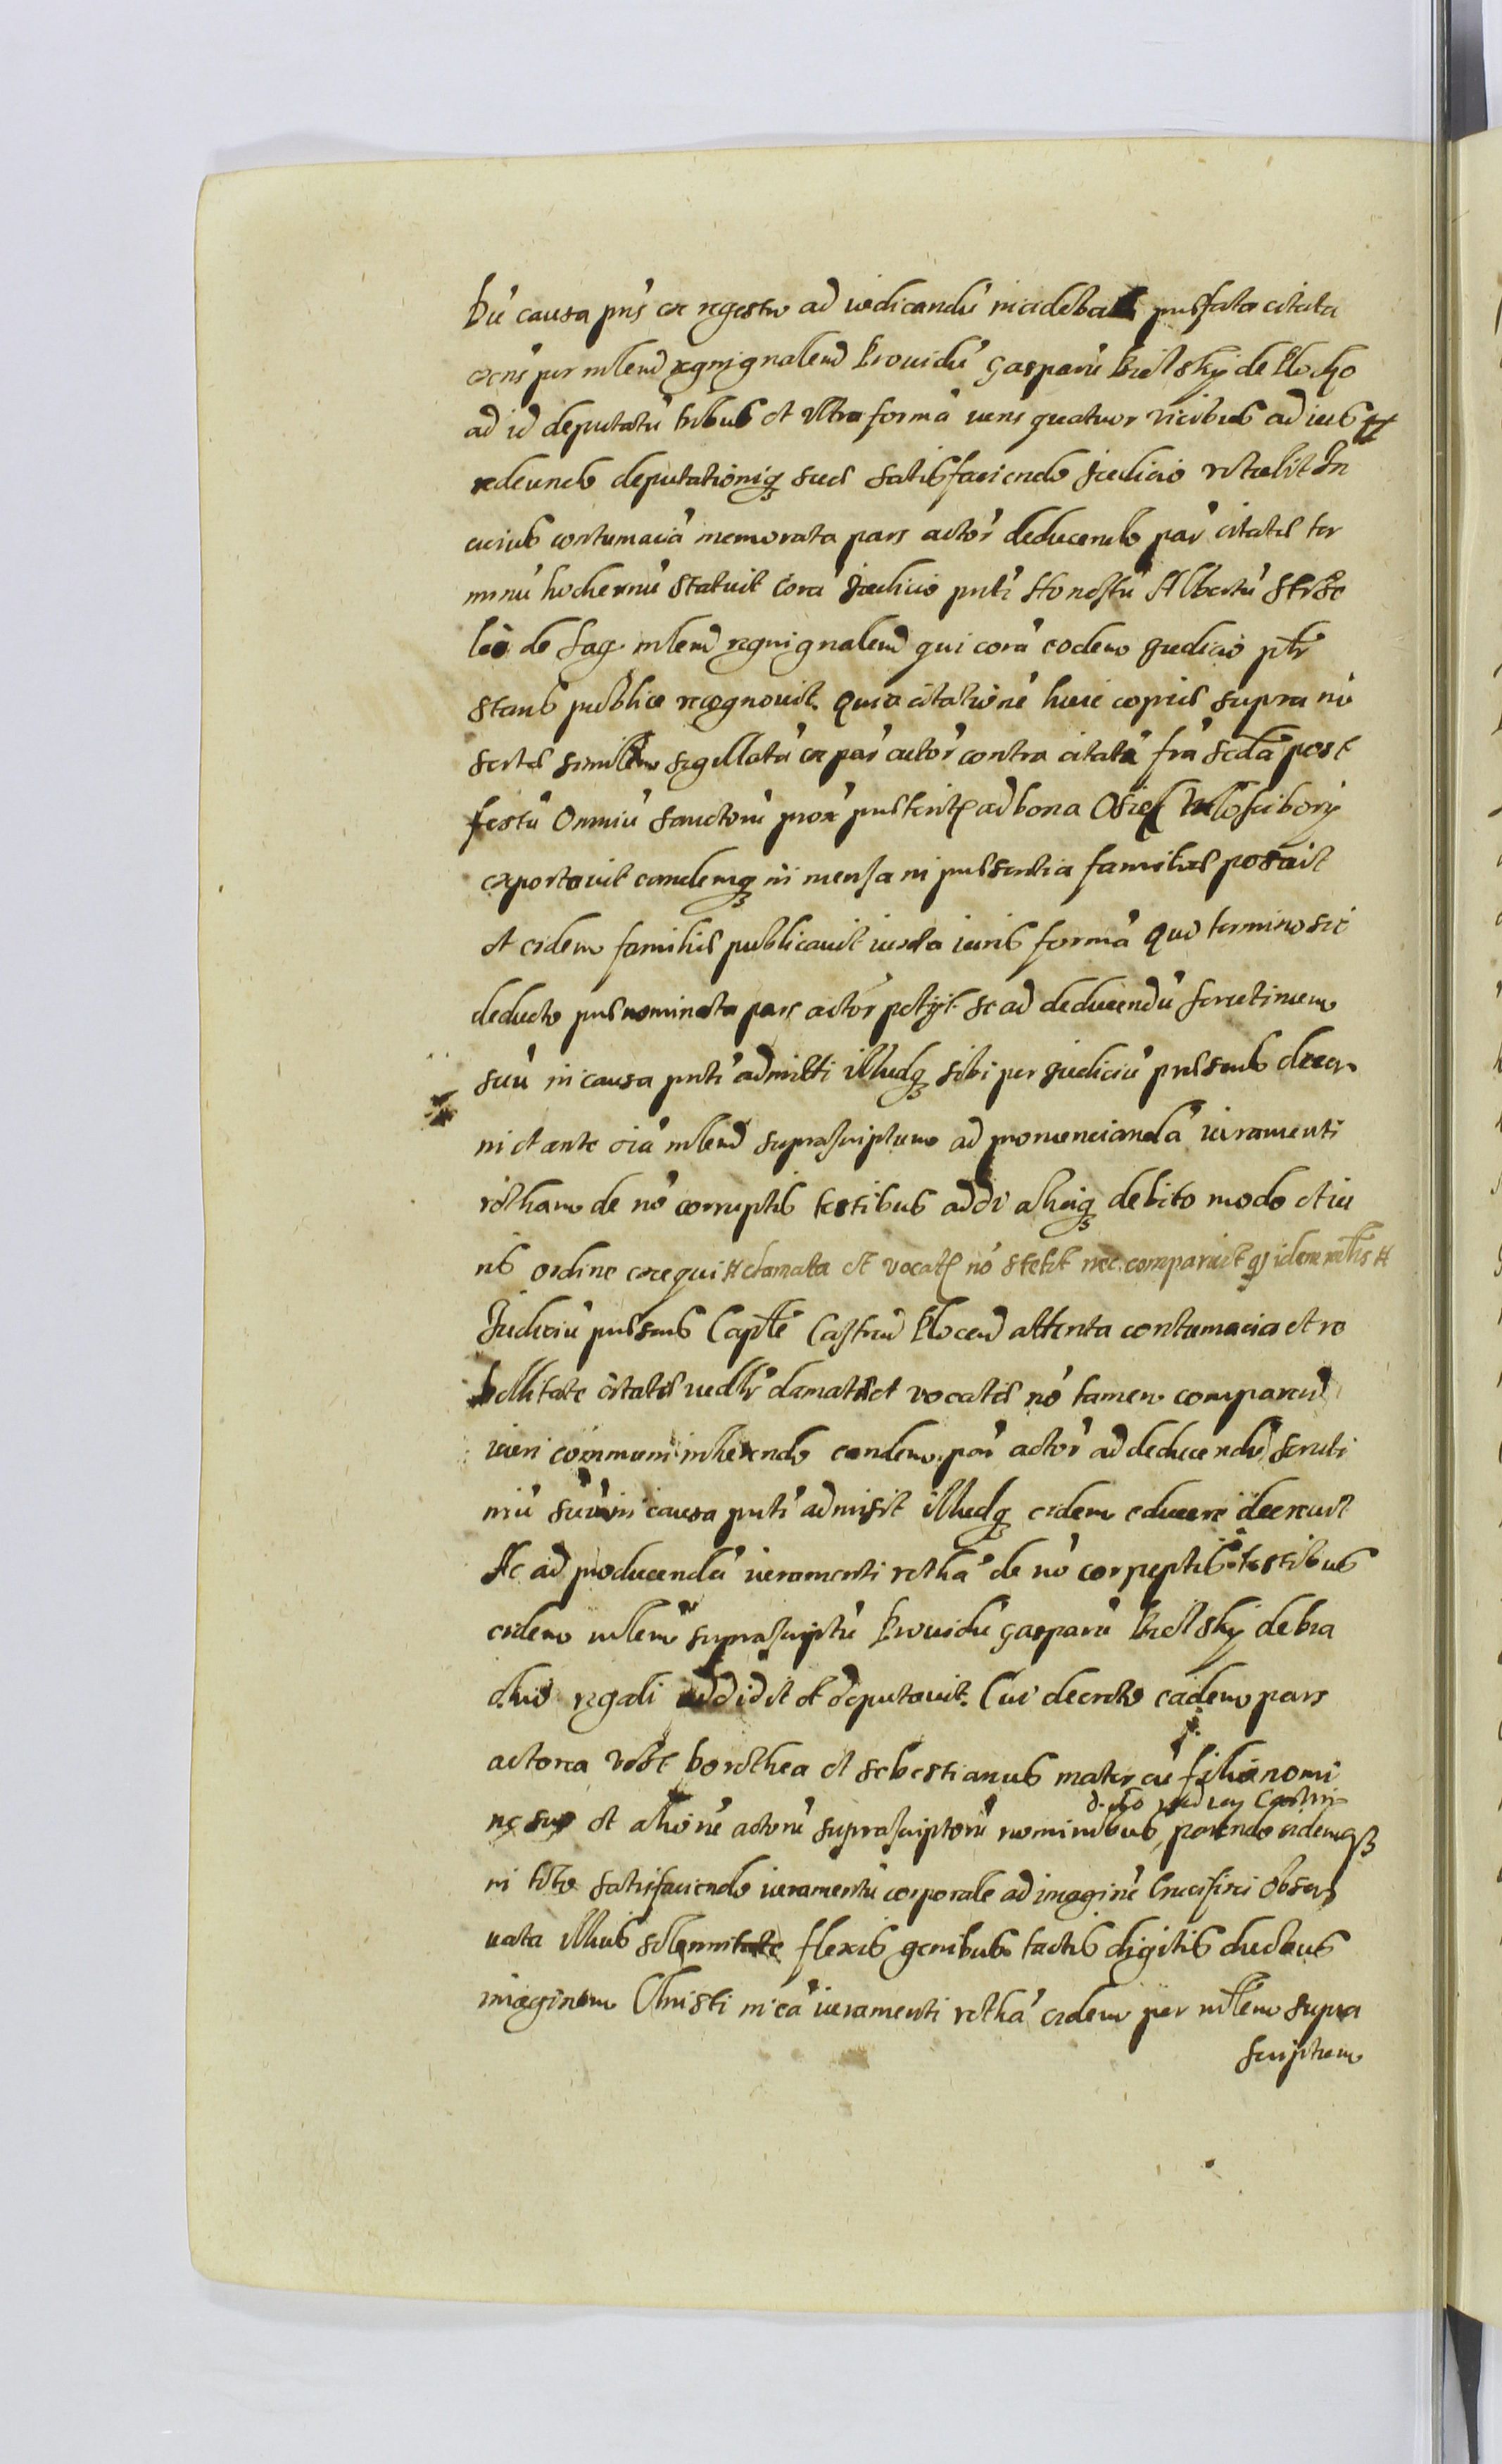 Dũ causa pñs ex regestro ad iudicandũ incidebat pręfata citata
per mlem regnignalem Prouidũ Gasparũ Bielsky de Plocko
ad id deputatũ tribus et vltra formã iuris quatuor vicibus ad ius #
redeundo deputationiq suę satisfaciendo Judicio retulit In
cuius contumaciã memorata pars actor̃ deducendo par̃ citatę ter
minũ hodiernũ statuit corã Judicio pñti Honestũ Albertũ
de mlem regnignalem qui corã eodem Judicio ptr̃
stans publice recognouit. Quia citationẽ huic copię supra in
sertę similem sigillatã ex par̃ actor̃ contra citatã fr̃a scdã post
festũ Omniũ Sanctorũ prox pręterit ad bona Osiek
exportauit eandemq in mensa in pręsentia familię posuit
et eidem familię publicauit iuxta iuris formã Quo termino sic
deducto pręnominata pars actor̃ petyt se ad deducendũ scrutinium
suũ in causa pñti admitti illudq sibi per Judiciũ pręsens decer
ni et ante oĩa mlem suprascriptum ad pronunciandã iuramenti
rotham de nõ corruptis testibus addi aliaq debito modo et iu
ris ordine exequi # clamata et vocat nõ stetit nec comparuit qd idem mlis #
Judiciũ pręsens Capitle Castren Plocen attenta contumacia et re
bellitate citatę vtcũ clamatę et vocatę nõ tamen comparen
iuri communi inherendo eandem par̃ actor̃ ad deducendũ scruti
niũ suũ in causa pñti admisit illudq eidem educere decreuit
Ac ad producendã iuramenti rothã de nõ corruptis testibus
eidem mlem suprascriptũ Prouidũ Gasparũ Bielsky de
regali addidit et deputauit. Cui decreto eadem pars
actorea vdlt Dorothea et Sebestianus mater cũ filio nomi
ne suo et aliorũ actorũ suprascriptorũ nominibus, parendo eidemq
in toto satisfaciendo iuramentũ corporale ad imaginẽ Crucifixi obser
uata illius solennitate flexis genibus tactis digitis duobus
imaginem Christi in eã iuramenti rothã eidem per mlem supra
scriptum